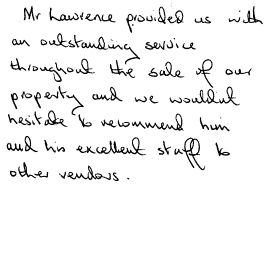 Mr Lawrence provided us with
an outstanding service
throughout the sale of our
property and we wouldn't
hesitate to recommend him
and his excellent staff to
other vendors.